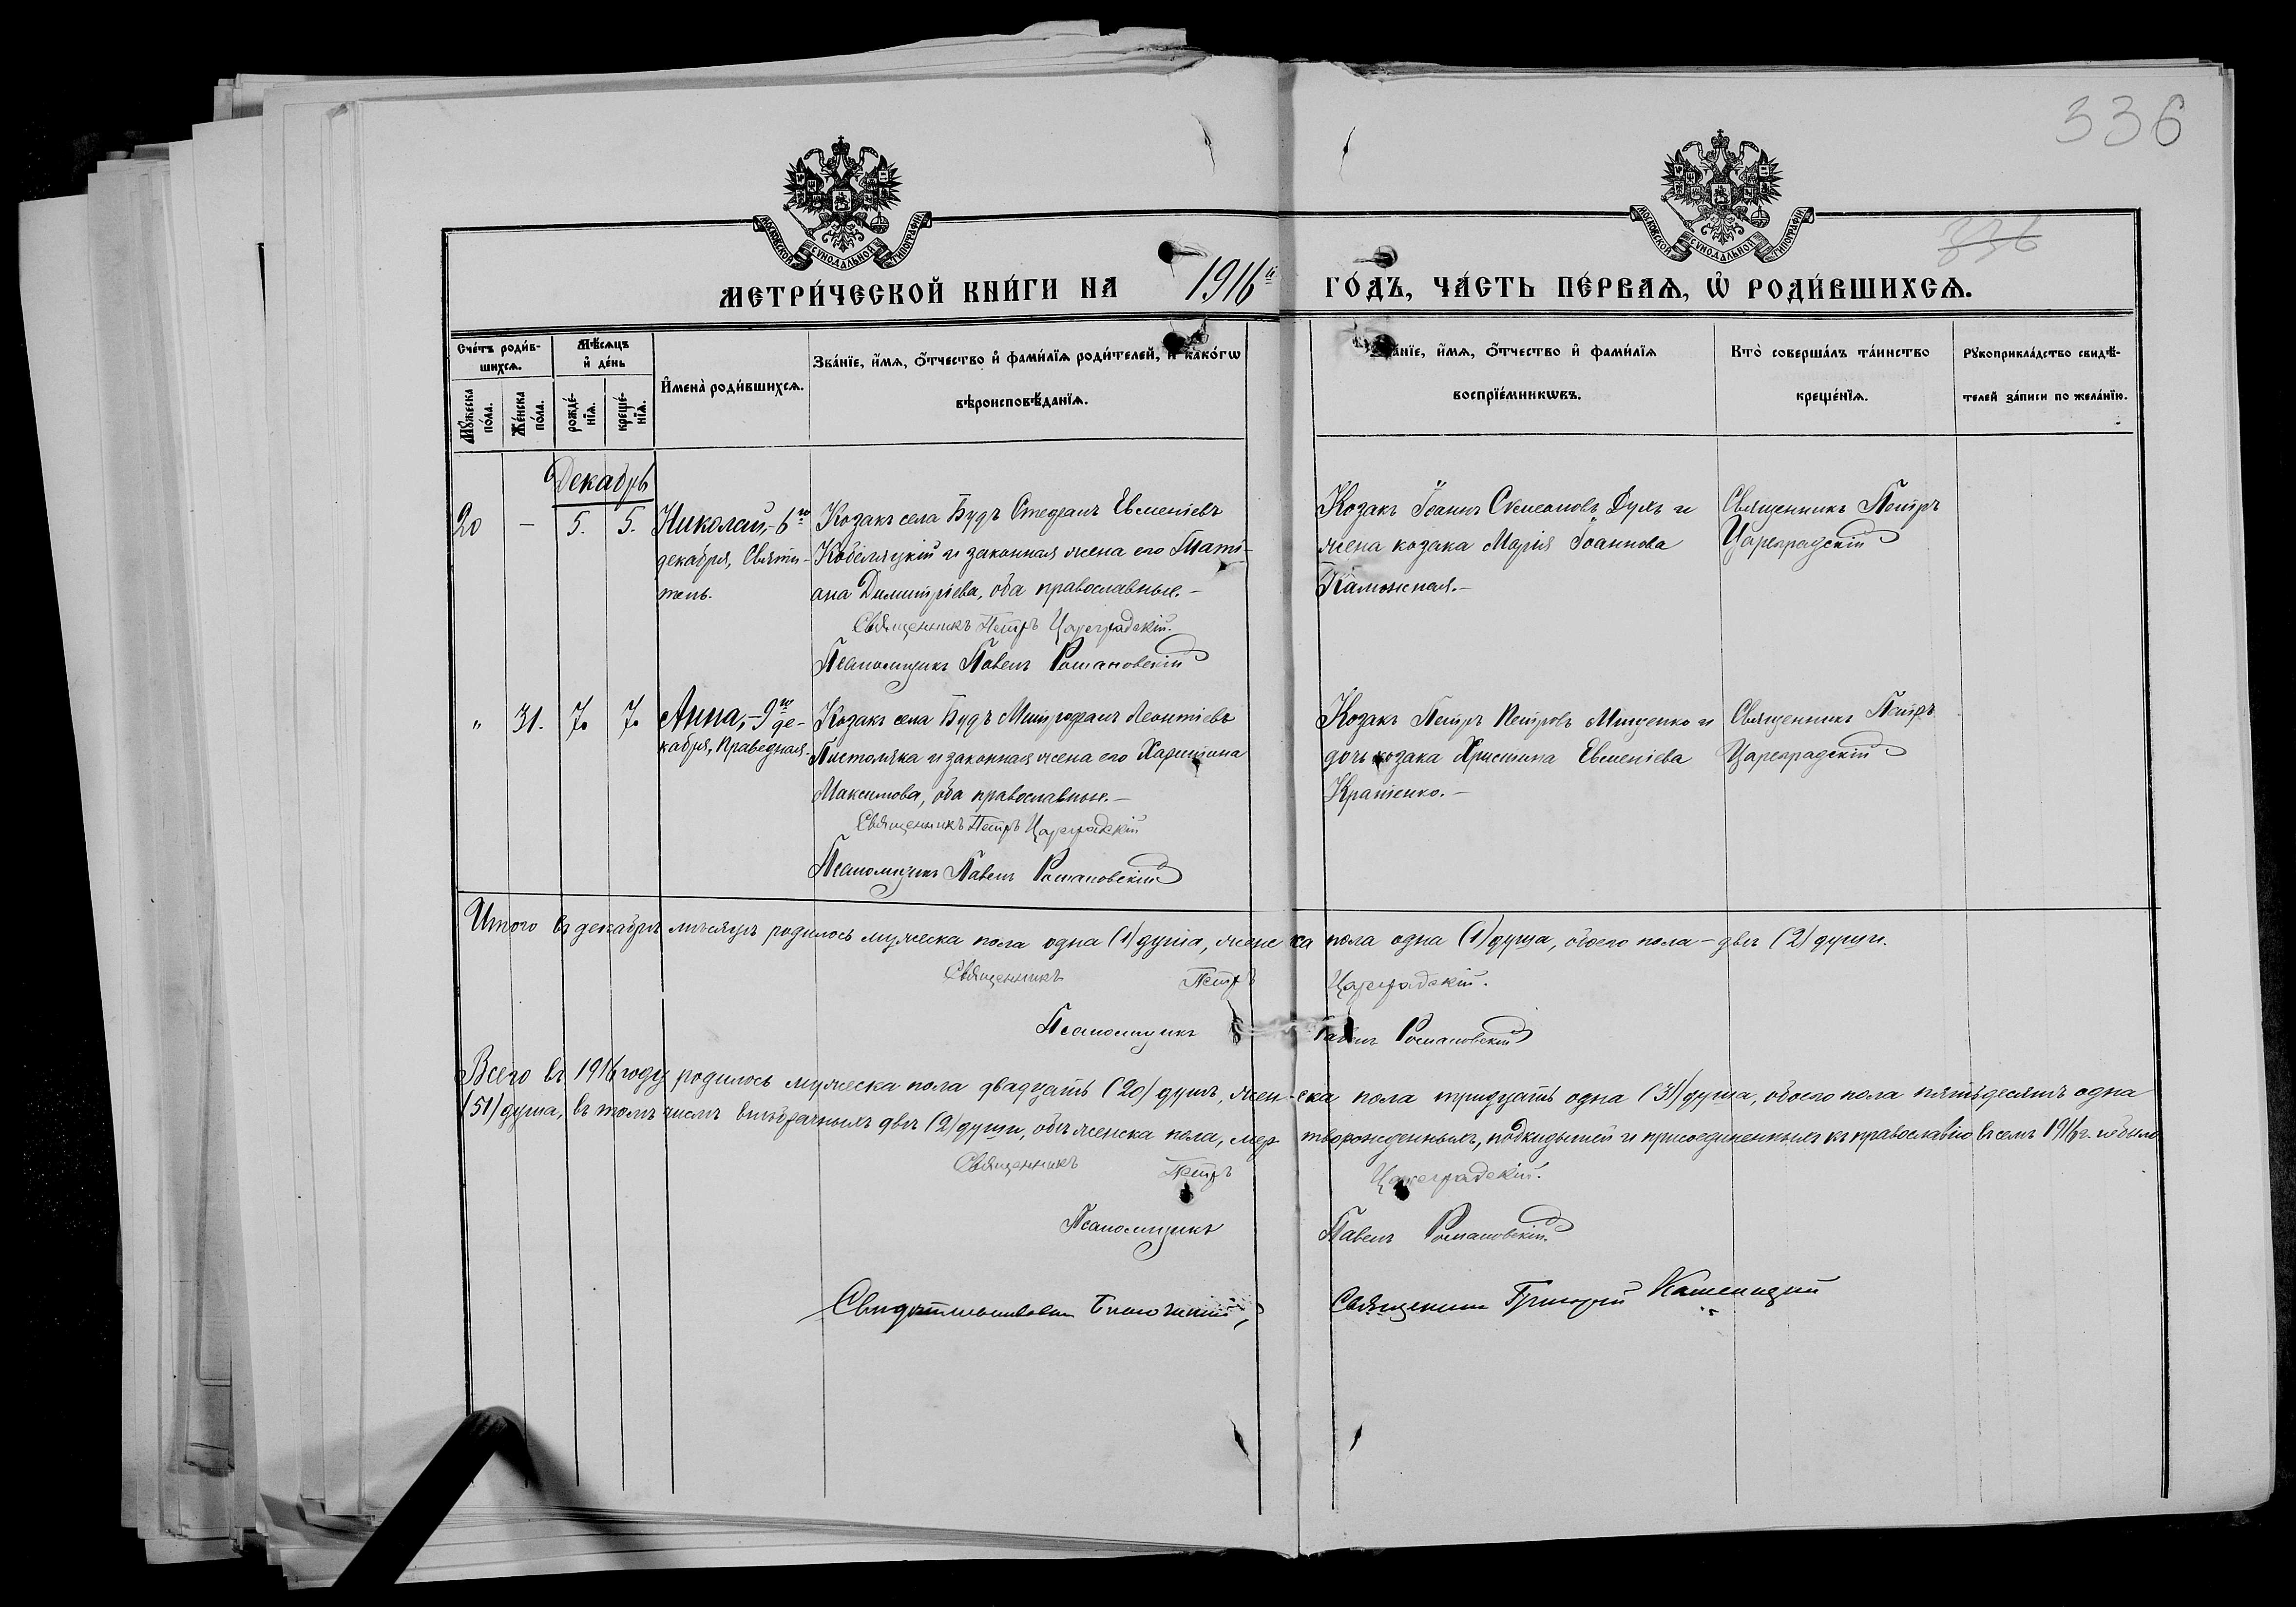 336
336
МОСКОВСКОЙ СѴНОДАЛЬНОЙ ТИПОГРАФІИ
МОСКОВСКОЙ СѴНОДАЛЬНОЙ ТИПОГРАФІИ
МЕТРИ́ЧЕСКОЙ КНИ́ГИ НА 1916й ГО́ДЪ, ЧА́СТЬ ПЕ́РВАѦ, Ѡ҆ РОДИ́ВШИХСѦ.
Сче́тъ роди́в-
шихсѧ.
Мѣ́сяцъ
и҆ де́нь
И҆мена̀ роди́вшихсѧ.
Зва́нїе, и҆́мѧ, ѻ҆́тчество и҆ фами́лїѧ роди́телей, и҆ како́гѡ
вѣроисповѣ́данїѧ.
Зва́нїе, и҆́мѧ, ѻ҆́тчество и҆ фами́лїѧ
воспрїе́мникѡвъ.
Кто̀ соверша́лъ та́инство
креще́нїѧ.
Рꙋкоприкла́дство свидѣ́-
телей за́писи по жела́нїю.
Мꙋ́жеска
по́ла.
Же́нска
по́ла.
рожде́-
нїѧ.
креще́-
нїѧ.
Декабрь
20 – 5. 5. Николай, – 6го
декабря, Святи-
тель.
Козакъ села Будъ Стефанъ Евменіевъ
Кобеляцкій и законная жена его Таті-
ана Димитріева, оба православные. –
Священникъ Петръ Цареградскій.
Псаломщикъ Павелъ Романовскій
Козакъ Іоаннъ Симеоновъ Думъ и
жена козака Марія Іоаннова
Каможная. –
Священникъ Петръ
Цареградскій
" 31. 7. 7. Анна, – 9го де-
кабря, Праведная.
Козакъ села Будъ Митрофанъ Леонтіевъ
Пистоляка и законная жена его Харитина
Максимова, оба православные. –
Священникъ Петръ Цареградскій
Псаломщикъ Павелъ Романовскій
Козакъ Петръ Петровъ Мищенко и
дочь козака Христина Евменіева
Кратенко. –
Священникъ Петръ
Цареградскій
Итого въ декабрѣ мѣсяцѣ родилось мужеска пола одна (1) душа, женска пола одна (1) душа, обоего пола – двѣ (2) души.
Священникъ Петръ Цареградскій.
Псаломщикъ Павелъ Романовскій
Всего въ 1916 году родилось мужеска пола двадцать (20) душъ, женска пола тридцать одна (31) душа, обоего пола пятьдесятъ одна
(51) душа, въ томъ числѣ внѣбрачныхъ двѣ (2) души, обѣ женска пола, мертворожденныхъ, подкидышей и присоединенныхъ къ православію въ семъ 1916 г. не было
Священникъ Петръ Цареградскій.
Псаломщикъ Павелъ Романовскій.
Свидѣтельствовалъ Благочинный, Священникъ Григорій Каменецкій